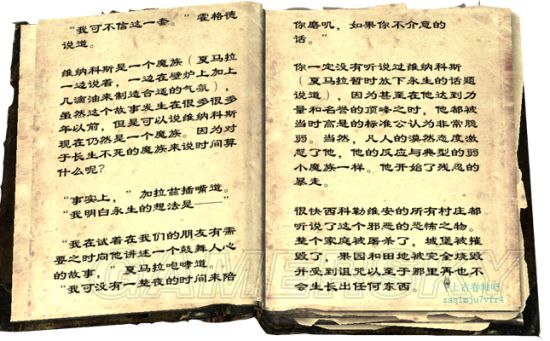 “我可不信这一套。”霍格德
说道。
维纳科斯是一个魔族（夏马拉
一边说着，一边在壁炉上加上
几滴油来制造合适的气氛），
虽然这个故事发生在很多很多
年以前，但是可以说维纳科斯
现在仍然是一个魔族。因为对
于长生不死的魔族来说时间算
什么呢？
“事实上，”加拉兹插嘴道。
“我明白永生的想法是——”
“我在试着在我们的朋友有需
要之时向他讲述一个鼓舞人心
的故事，夏马拉咆哮道。
“我可没有一整夜的时间来陪
你磨叽，如果你不介意的
话。”
你一定没有听说过维纳科斯
（夏马拉暂时放下永生的话题
说道），因为甚至在他达到力
量和名誉的顶峰之时，他都被
当时高悬的标准公认为非常脆
弱。当然，凡人的漠然态度激
怒了他，他的反应与典型的弱
小魔族一样。他开始了残忍的
暴走。
很快西科勒维安的所有村庄都
听说了这个邪恶的恐怖之物。
整个家庭被屠杀了，城堡被摧
毁了，果园和田地被完全烧毁
并受到诅咒以至于那里再也不
会生长出任何东西
上古卷轴吧
zaqimju7vfr4